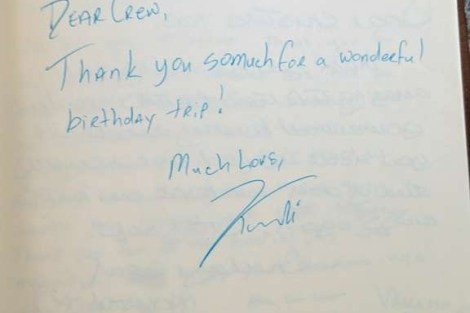 DEAR CREW,
Thank you so much for a wonderful
birthday trip!
Much Love,